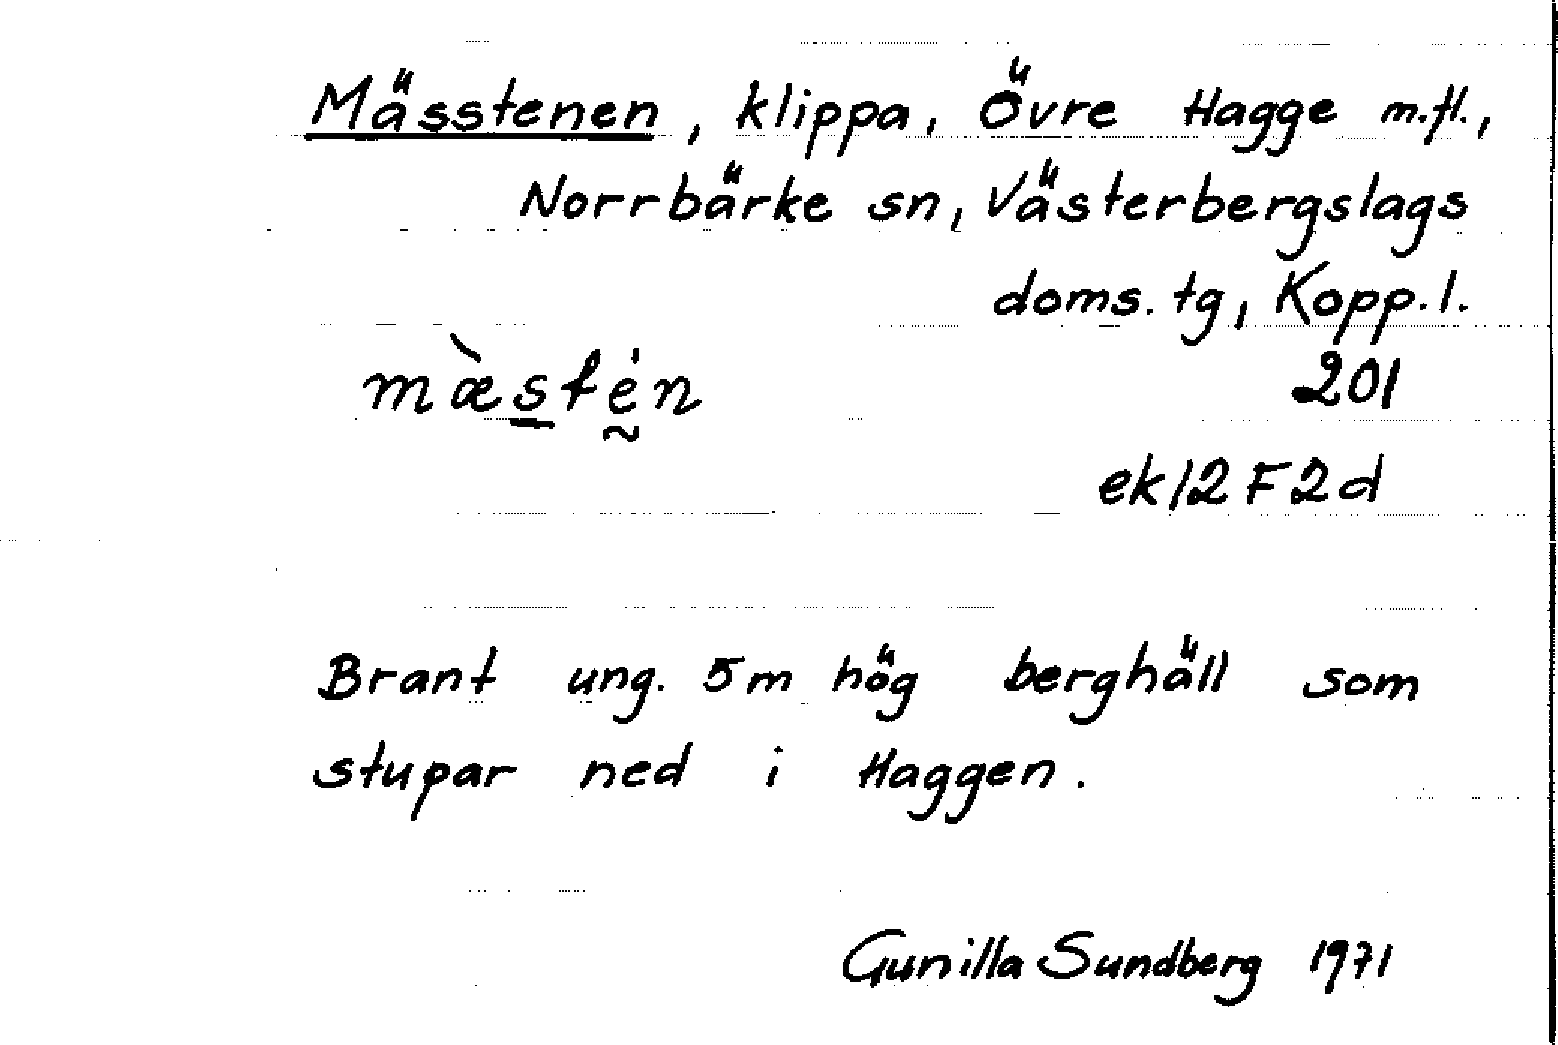 Mässtenen, klippa, Övre Hagge m.fl.,
Norrbärke sn, Västerbergslags
doms. tg, Kopp. l.
mæ̀stén 201
ek 12 F 2d
Brant ung. 5 m hög berghäll som
stupar ned i Haggen.
Gunilla Sundberg 1971